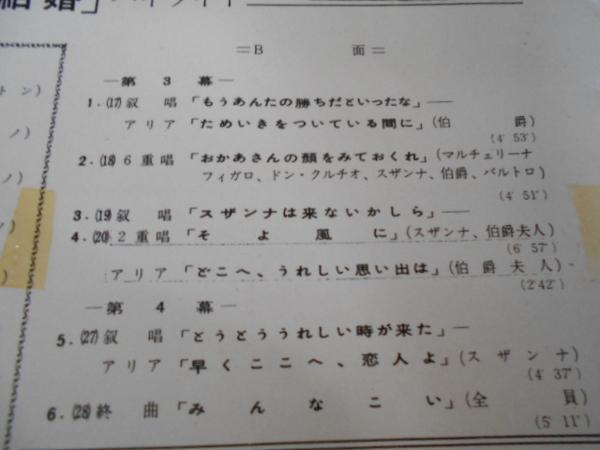 結婚」ハイライト
＝B　面＝
―第 3 幕―
1.(17)叙 唱「もうあんたの勝ちだといったな」―
アリア「ためいきをついている間に」(伯 爵)
(4′53″)
2.(18)6重唱「おかあさんの顔をみておくれ」(マルチェリーナ
フィガロ、ドン・クルチオ、スザンナ、伯爵、バルトロ)
(4′51″)
3.(19)叙 唱「スザンナは来ないかしら」―
4.(20)2重唱「そ よ 風 に」(スザンナ、伯爵夫人)
(6′57″)
アリア「どこへ、うれしい思い出は」(伯爵夫人)
(2′42″)
―第 4 幕―
5.(27)叙 唱「とうとううれしい時が来た」―
アリア「早くここへ、恋人よ」(スザンナ)
(4′37″)
6.(28)終 曲「み ん な こ い」(全 員)
(5′11″)
トン)
ノ)
ノ)
ノ)
)